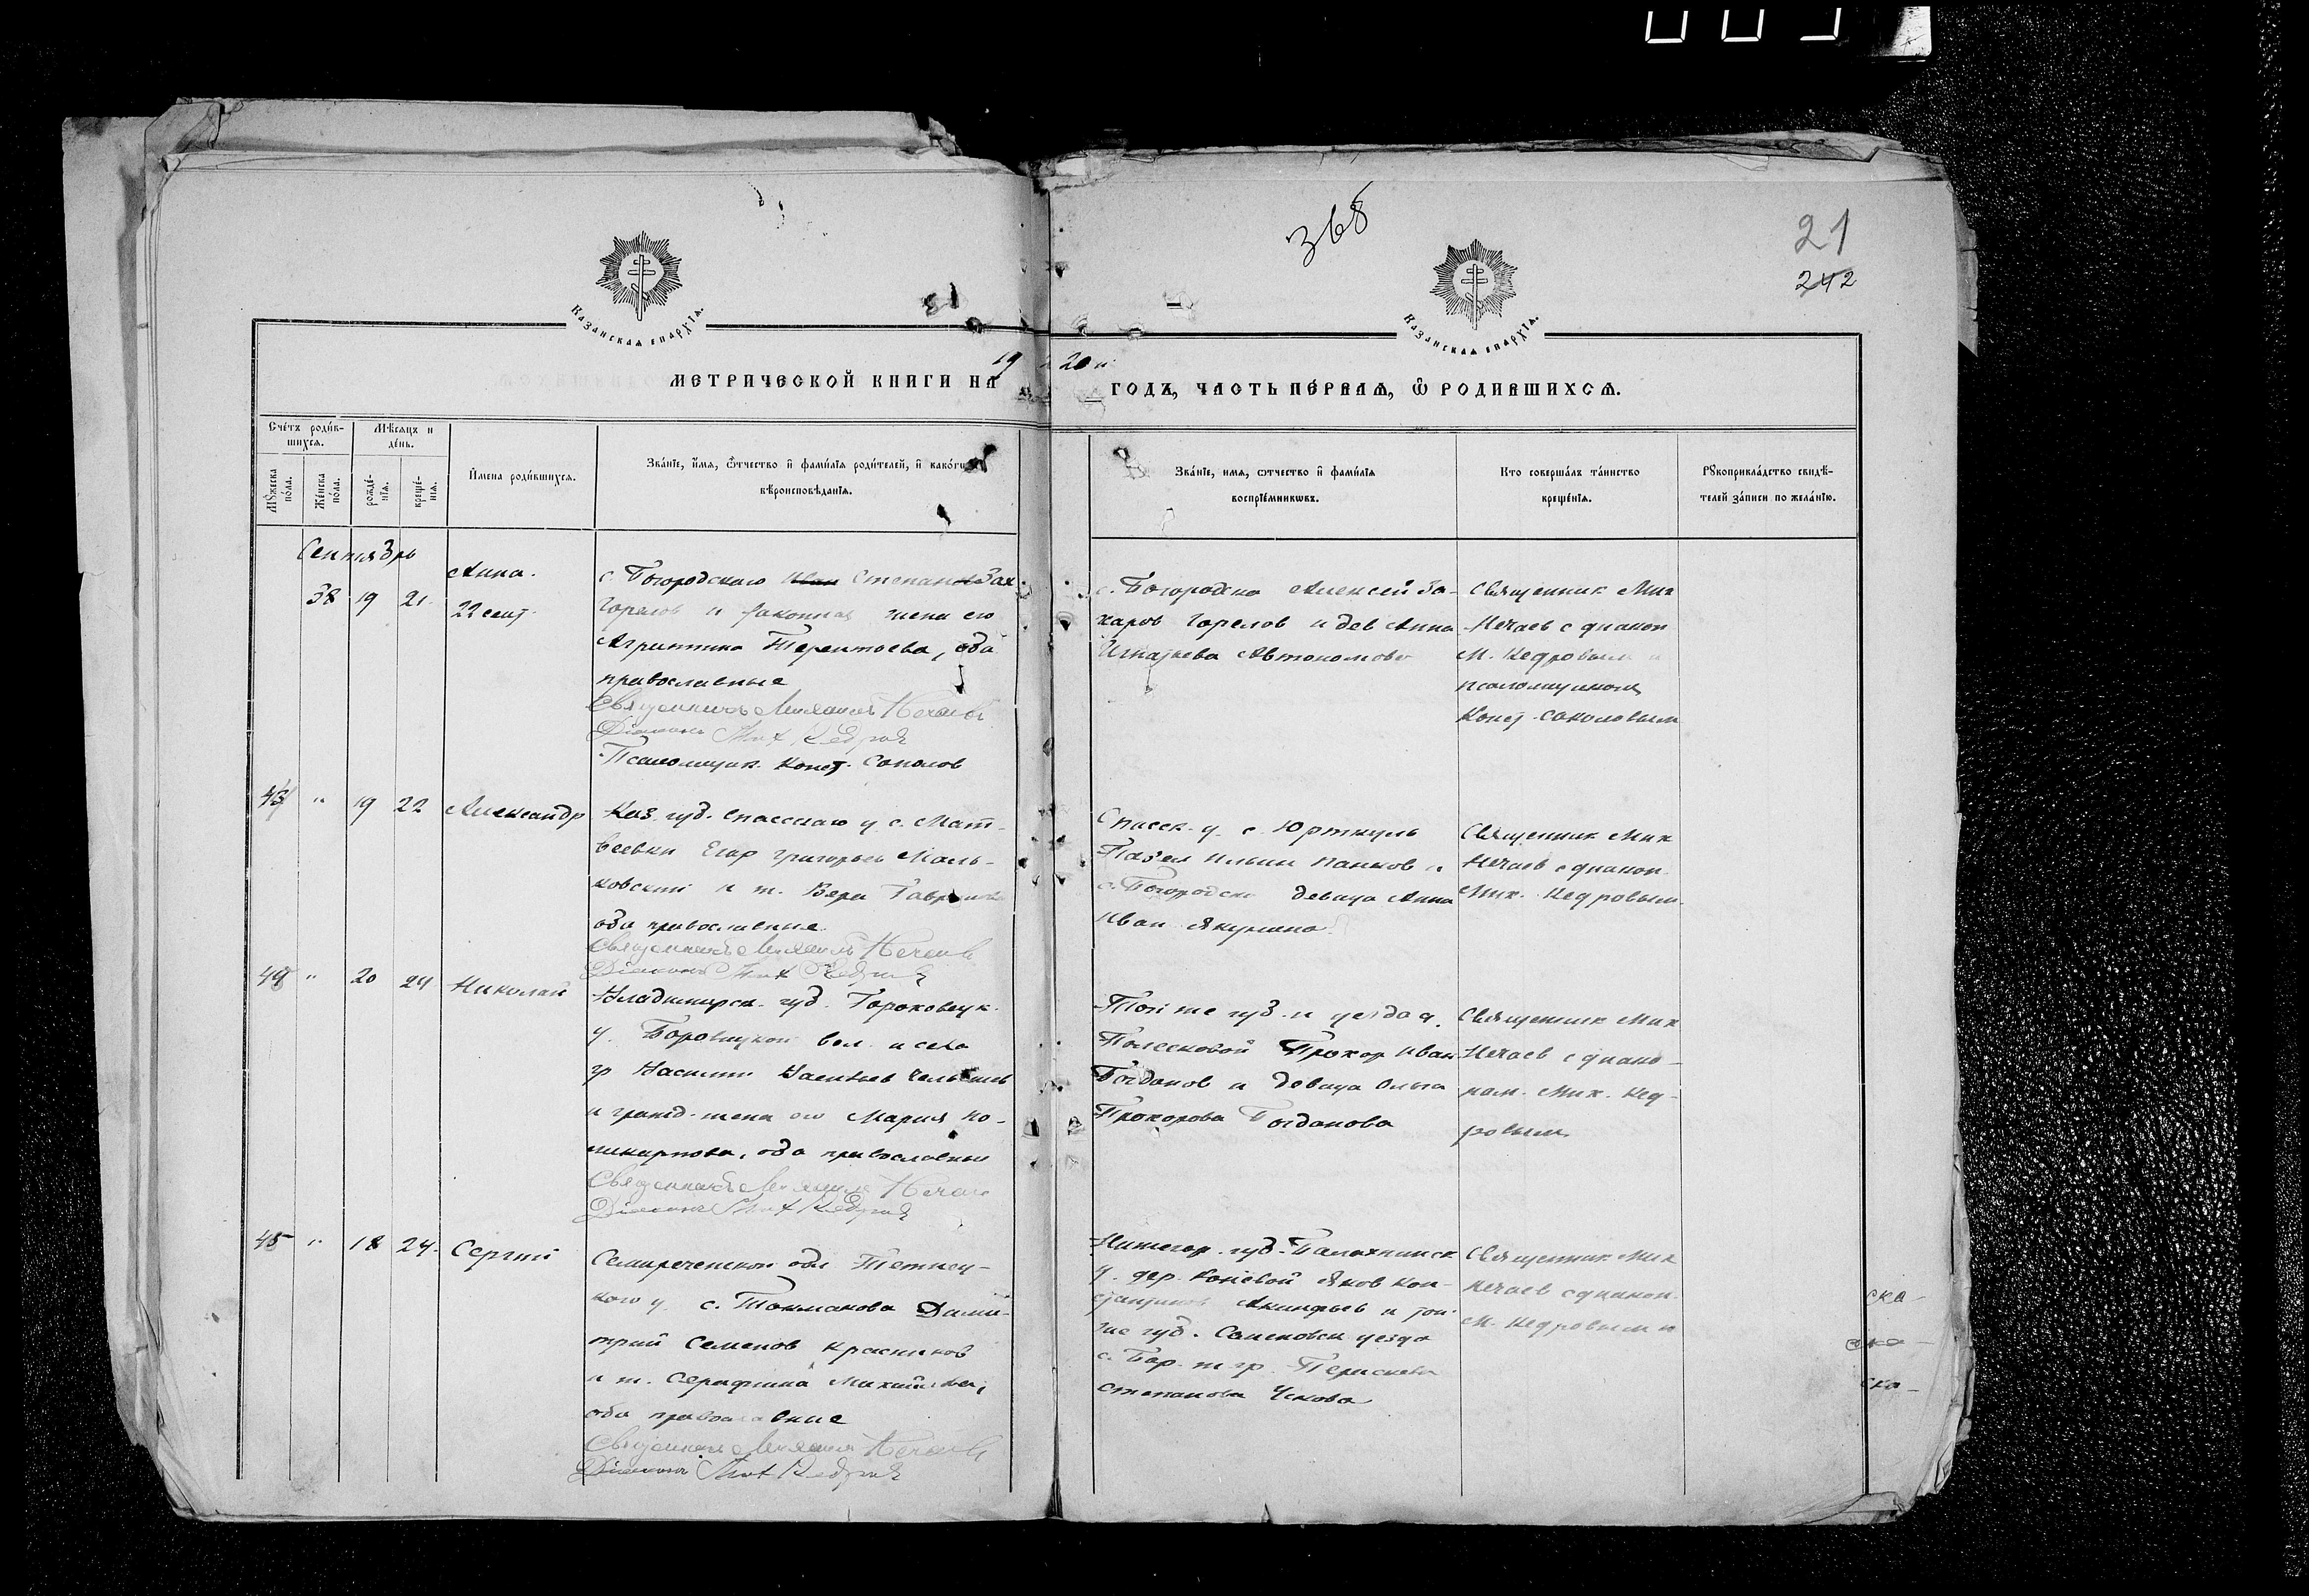 368
21
242
Казанская епархїѧ.
Казанская епархїѧ.
19 20 г.
МЕТРИЧЕСКОЙ КНИГИ НА
ГОДЪ, ЧАСТЬ ПЕ́РВАѦ, Ѽ РОДИВШИХСѦ.
Сче́тъ роди́в-
шихсѧ.
Мѣ́сѧцъ и
де́нь.
Мꙋ́жеска
по́ла.
Же́нска
по́ла.
рожде́-
нїѧ.
креще́-
нїѧ.
И҆мена роди́вшихсѧ.
Зва́нїе, и҆́мѧ, ѻ҆́тчество и҆ фами́лїѧ роди́телей, и҆ како́гѡ
вѣроисповѣ́данїѧ.
Зва́нїе, имѧ, ѻтчество и҆ фами́лїѧ
воспрїе́мникѡвъ.
Кто соверша́лъ та́инство
креще́нїѧ.
Рꙋкоприкла́дство свидѣ́-
телей за́писи по жела́нїю.
Сентябрь
38 19 21.
Анна.
22 сент.
с. Богородского Иван Степанов Зах
Горелов и законная жена его
Агриппина Терентьева, оба
православные
Священникъ Михаилъ Нечаевъ
Дiаконъ Мих Кедровъ
Псаломщик. Конст. Соколов
с. Богородска Алексей За-
харов Горелов и дев Анна
Игнатьева Автономова
Священник Мих
Нечаев с диакон
М. Кедровым и
псаломщиком
Конст. Соколовым
43 " 19 22 Александр
Каз. губ. Спасскаго у. с. Мат-
веевки Егор Григорьев Маль-
ковский и ж. Вера Гаврилова
оба православные
Священникъ Михаилъ Нечаевъ
Дiаконъ Мих Кедровъ
Спасск. у. с. Юрткуль
Павел Ильин Панков и
с. Богородска девица Анна
Иван Якунина
Священник Мих
Нечаев с диакон
Мих. Кедровым.
44 " 20 24 Николай
Владимирск. губ. Гороховецк.
у. Боровицкой вол. и села
гр Василий Васильев
и гражд. жена его Мария По-
ликарпова, оба православные
Священникъ Михаилъ Нечаевъ
Дiаконъ Мих Кедровъ
Той же губ. и уезда д.
Полесковой Прохор Иван
Богданов и девица Ольга
Прохорова Богданова
Священник Мих
Нечаев с диако-
ном. Мих. Кед-
ровым.
45 " 18 24. Сергий
Семиреченской обл
кого у. с. Токмакова Дими-
трий Семенов Красников
и ж. Серафима Михайлова,
оба православные
Священникъ Михаилъ Нечаевъ
Дiаконъ Мих Кедровъ
Нижегор. губ. Балахнинск
у. дер. Коневой Яков Кон-
стантинов Акинфьев и той
же губ. Семеновск уезда
с. Бор. ж гр. Параскева
Степанова
Священник Мих
Нечаев с диакон.
М. Кедровым и
ска-
ска-
ска-